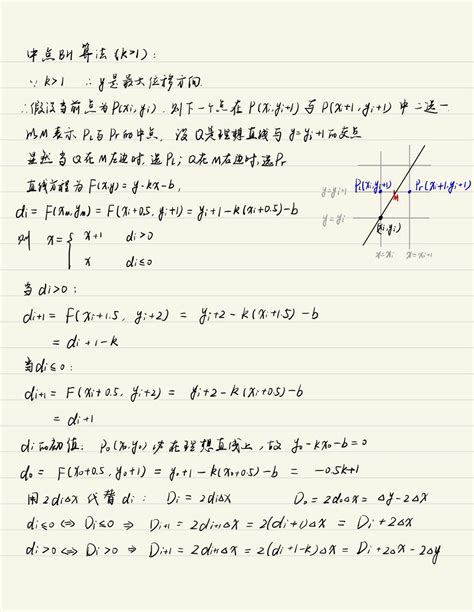 中点BH算法(k>1):
∵ k>1 ∴ y是最大位移方向.
∴假设当前点为P(xi,yi). 则下一个点在P(xi,yi+1)与P(xi+1,yi+1)中二选一
以M表示Pl与Pr的中点. 设Q是理想直线与y=yi+1的交点
显然当Q在M左边时,选Pl; Q在M右边时,选Pr
直线方程为F(x,y)=y-kx-b,
di = F(xm,ym) = F(xi+0.5, yi+1) = yi+1-k(xi+0.5)-b
则 x={ x+1 di>0
x di≤0
y=yi+1
y=yi
Pl(xi,yi+1)
Pr(xi+1,yi+1)
M
(xi,yi)
x=xi x=xi+1
当di>0:
di+1 = F(xi+1.5, yi+2) = yi+2-k(xi+1.5)-b
= di+1-k
当di≤0:
di+1 = F(xi+0.5, yi+2) = yi+2-k(xi+0.5)-b
= di+1
di的初值: P0(x0,y0)必在理想直线上, 故 y0-kx0-b=0
d0 = F(x0+0.5, y0+1) = y0+1-k(x0+0.5)-b = -0.5k+1
用2di△x代替di: Di = 2di△x D0 = 2d0△x = △y-2△x
di≤0 ⇔ Di≤0 ⇒ Di+1 = 2di+1△x = 2(di+1)△x = Di+2△x
di>0 ⇔ Di>0 ⇒ Di+1 = 2di+1△x = 2(di+1-k)△x = Di+2△x-2△y